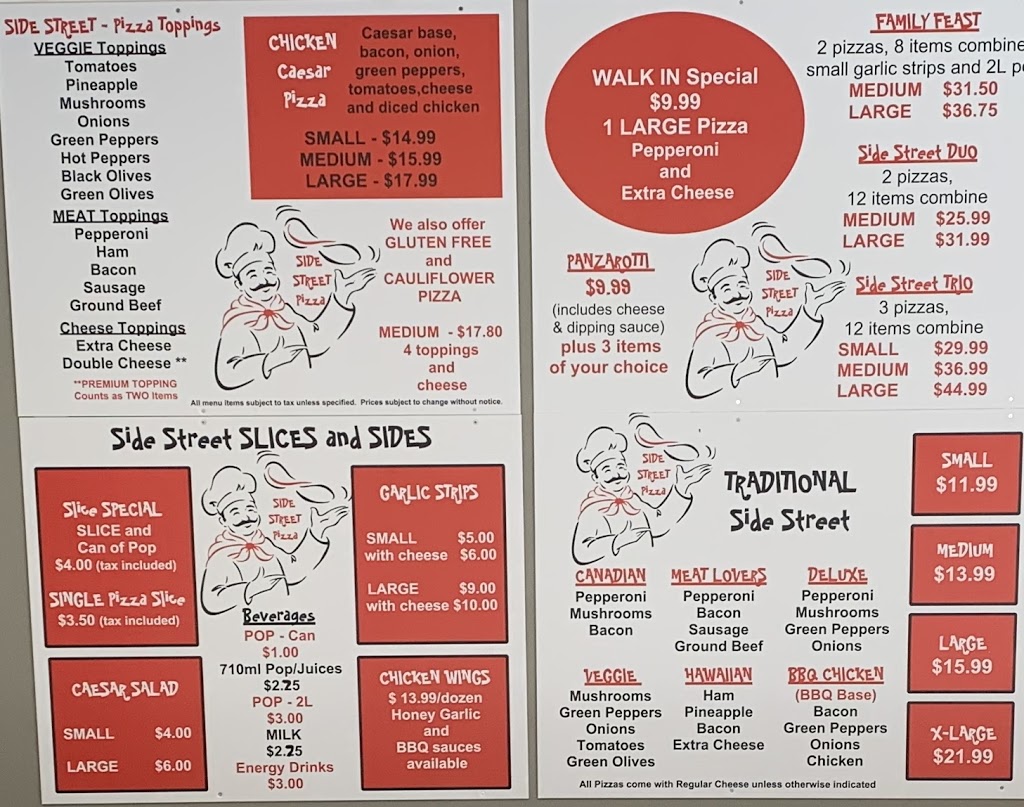 SIDE STREET - Pizza Toppings
VEGGIE Toppings
Tomatoes
Pineapple
Mushrooms
Onions
Green Peppers
Hot Peppers
Black Olives
Green Olives
MEAT Toppings
Pepperoni
Ham
Bacon
Sausage
Ground Beef
Cheese Toppings
Extra Cheese
Double Cheese **
**PREMIUM TOPPING
Counts as TWO Items
CHICKEN
Caesar
Pizza
Caesar base,
bacon, onion,
green peppers,
tomatoes,cheese
and diced chicken
SMALL - $14.99
MEDIUM - $15.99
LARGE - $17.99
SIDE
STREET
Pizza
We also offer
GLUTEN FREE
and
CAULIFLOWER
PIZZA
MEDIUM - $17.80
4 toppings
and
cheese
All menu items subject to tax unless specified. Prices subject to change without notice.
WALK IN Special
$9.99
1 LARGE Pizza
Pepperoni
and
Extra Cheese
PANZAROTTI
$9.99
(includes cheese
& dipping sauce)
plus 3 items
of your choice
SIDE
STREET
Pizza
FAMILY FEAST
2 pizzas, 8 items combine
small garlic strips and 2L
MEDIUM $31.50
LARGE $36.75
Side Street DUO
2 pizzas,
12 items combine
MEDIUM $25.99
LARGE $31.99
Side Street TRIO
3 pizzas,
12 items combine
SMALL $29.99
MEDIUM $36.99
LARGE $44.99
Side Street SLICES and SIDES
Slice SPECIAL
SLICE and
Can of Pop
$4.00 (tax included)
SINGLE Pizza Slice
$3.50 (tax included)
CAESAR SALAD
SMALL $4.00
LARGE $6.00
SIDE
STREET
Pizza
Beverages
POP - Can
$1.00
710ml Pop/Juices
$2.25
POP - 2L
$3.00
MILK
$2.25
Energy Drinks
$3.00
GARLIC STRIPS
SMALL $5.00
with cheese $6.00
LARGE $9.00
with cheese $10.00
CHICKEN WINGS
$ 13.99/dozen
Honey Garlic
and
BBQ sauces
available
SIDE
STREET
Pizza
TRADITIONAL
Side Street
CANADIAN
Pepperoni
Mushrooms
Bacon
MEAT LOVERS
Pepperoni
Bacon
Sausage
Ground Beef
DELUXE
Pepperoni
Mushrooms
Green Peppers
Onions
VEGGIE
Mushrooms
Green Peppers
Onions
Tomatoes
Green Olives
HAWAIIAN
Ham
Pineapple
Bacon
Extra Cheese
BBQ CHICKEN
(BBQ Base)
Bacon
Green Peppers
Onions
Chicken
SMALL
$11.99
MEDIUM
$13.99
LARGE
$15.99
X-LARGE
$21.99
All Pizzas come with Regular Cheese unless otherwise indicated